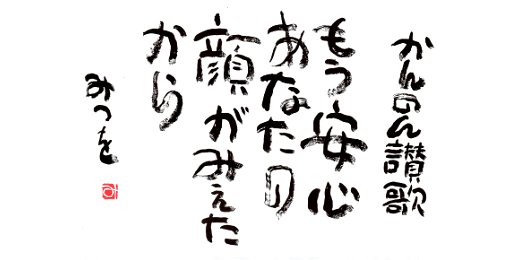 かんのん讃歌
もう安心
あなたの
顔がみえた
から
みつを
み